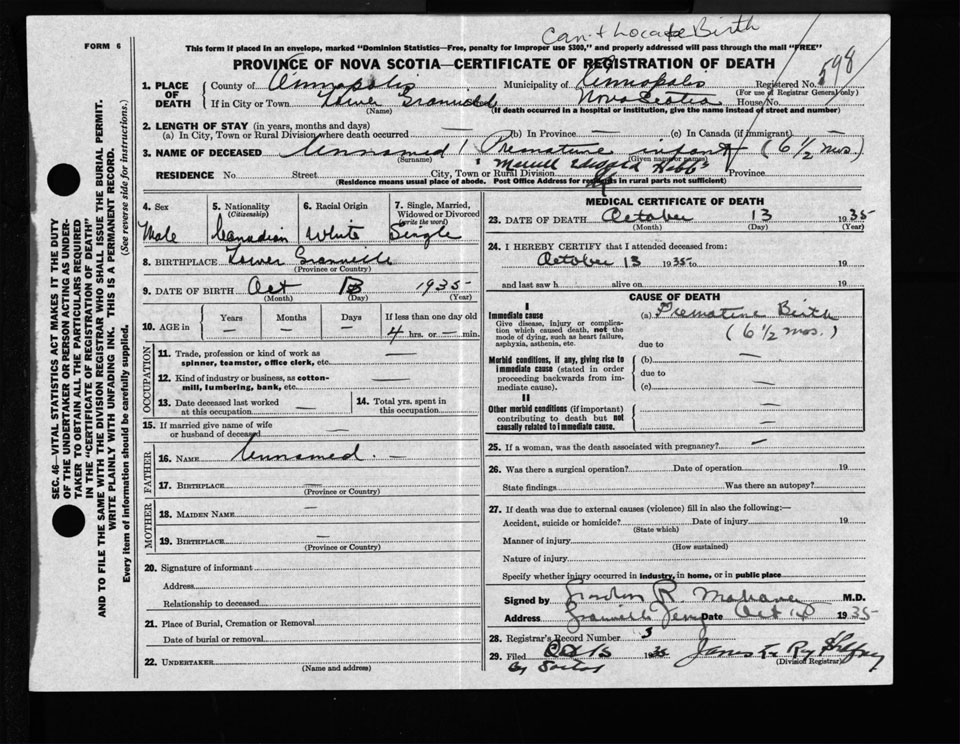 Can't Locate Birth
FORM 6
This form if placed in an envelope, marked "Dominion Statistics—Free, penalty for improper use $300," and properly addressed will pass through the mail "FREE"
PROVINCE OF NOVA SCOTIA—CERTIFICATE OF REGISTRATION OF DEATH
1. PLACE OF DEATH
County of Annapolis Municipality of Annapolis Registered No. 598
(For use of Registrar General only)
If in City or Town Lower Granville Nova Scotia House No.
(Name) (If death occurred in a hospital or institution, give the name instead of street and number)
2. LENGTH OF STAY (in years, months and days)
(a) In City, Town or Rural Division where death occurred — (b) In Province — (c) In Canada (if immigrant) —
3. NAME OF DECEASED Unnamed Premature infant (6 1/2 mos.)
(Surname) (Given name or names)
RESIDENCE No. Street City, Town or Rural Division Province
(Residence means usual place of abode. Post Office Address for in rural parts not sufficient)
SEC. 46—VITAL STATISTICS ACT MAKES IT THE DUTY
OF THE UNDERTAKER OR PERSON ACTING AS UNDER-
TAKER TO OBTAIN ALL THE PARTICULARS REQUIRED
IN THE "CERTIFICATE OF REGISTRATION OF DEATH"
AND TO FILE THE SAME WITH THE DIVISION REGISTRAR WHO SHALL ISSUE THE BURIAL PERMIT.
WRITE PLAINLY WITH UNFADING INK. THIS IS A PERMANENT RECORD.
Every item of information should be carefully supplied. (See reverse side for instructions.)
4. Sex
Male
5. Nationality
(Citizenship)
Canadian
6. Racial Origin
White
7. Single, Married,
Widowed or Divorced
(write the word)
Single
8. BIRTHPLACE Lower Granville
(Province or Country)
9. DATE OF BIRTH Oct 13 1935
(Month) (Day) (Year)
10. AGE in
Years Months Days If less than one day old
— — — 4 hrs. or — min.
OCCUPATION
11. Trade, profession or kind of work as
spinner, teamster, office clerk, etc. —
12. Kind of industry or business, as cotton-
mill, lumbering, bank, etc. —
13. Date deceased last worked
at this occupation —
14. Total yrs. spent in
this occupation
15. If married give name of wife
or husband of deceased
FATHER
16. NAME Unnamed. —
17. BIRTHPLACE —
(Province or Country)
MOTHER
18. MAIDEN NAME —
19. BIRTHPLACE —
(Province or Country)
20. Signature of informant
Address
Relationship to deceased
21. Place of Burial, Cremation or Removal
Date of burial or removal
22. UNDERTAKER
(Name and address)
MEDICAL CERTIFICATE OF DEATH
23. DATE OF DEATH October 13 1935
(Month) (Day) (Year)
24. I HEREBY CERTIFY that I attended deceased from:
October 13 1935 to 19
and last saw h alive on 19
CAUSE OF DEATH
I
Immediate cause
Give disease, injury or complica-
tion which caused death, not the
mode of dying, such as heart failure,
asphyxia, asthenia, etc.
(a) Premature Birth
(6 1/2 mos.)
due to
Morbid conditions, if any, giving rise to
immediate cause (stated in order
proceeding backwards from im-
mediate cause).
(b) —
due to
(c) —
II
Other morbid conditions (if important)
contributing to death but not
causally related to immediate cause.
—
—
25. If a woman, was the death associated with pregnancy? —
26. Was there a surgical operation? Date of operation 19
State findings Was there an autopsy?
27. If death was due to external causes (violence) fill in also the following:—
Accident, suicide or homicide? Date of injury 19
(State which)
Manner of injury
(How sustained)
Nature of injury
Specify whether injury occurred in industry, in home, or in public place
Signed by Gordon R. Mahaney M.D.
Address Granville Ferry Date Oct 14 1935
28. Registrar's Record Number 3
29. Filed Oct 15 1935
(Division Registrar)